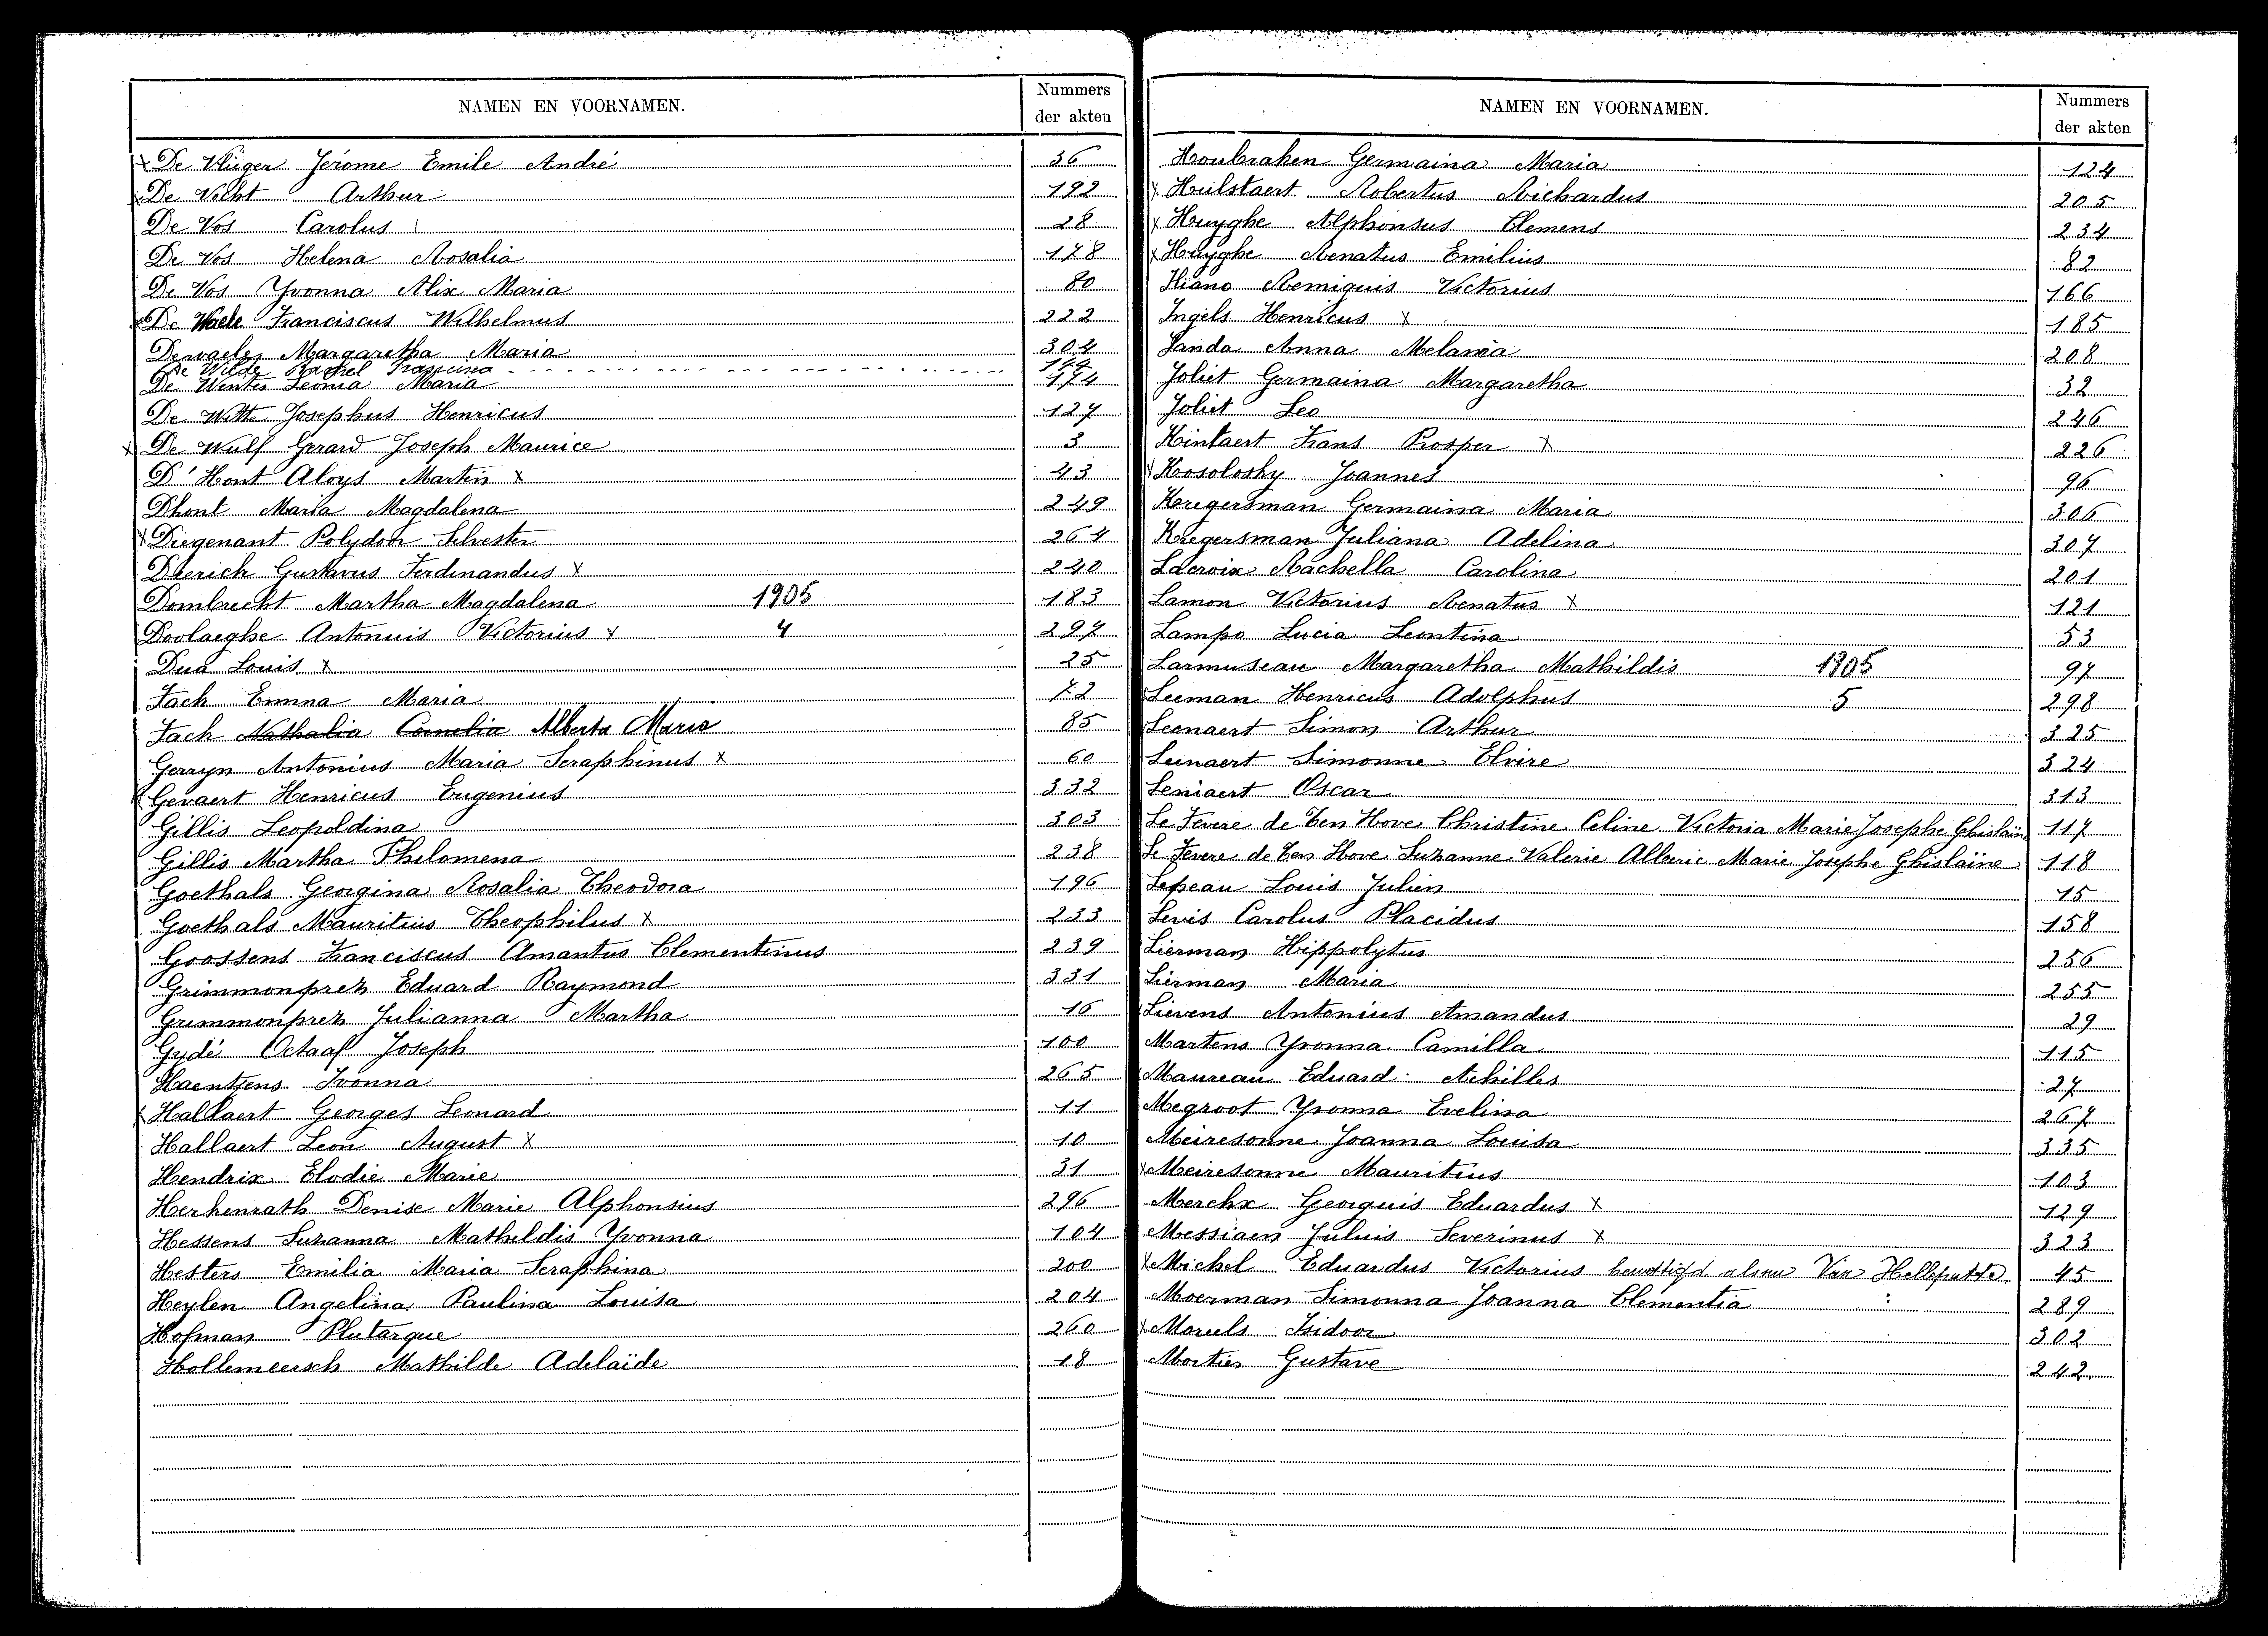 NAMEN EN VOORNAMEN. Nummers der akten
x De Vlieger Jérome Emile André 36
x De Vicht Arthur 192
De Vos Carolus 28
De Vos Helena Rosalia 178
De Vos Yvonna Alix Maria 80
De Waele Franciscus Wilhelmus 222
Dewaele Margaretha Maria 304
De Wilde Rachel
De Winter Leonia Maria 174
De Witte Josephus Henricus 127
x De Wulf Gerard Joseph Maurice 3
D'Hont Aloys Martin x 43
Dhont Maria Magdalena 249
x Diegenant Polydoor Silvester 264
Dierich Gustavus Ferdinandus x 240
Dombrecht Martha Magdalena 1905 183
Doolaeghe Antonius Victorius x 4 297
Dua Louis x 25
Fach Emma Maria 72
Fach Nathalia Cornelia Alberta Maria 85
Gerryn Antonius Maria Seraphinus x 60
Gevaert Henricus Eugenius 332
Gillis Leopoldina 303
Gillis Martha Philomena 238
Goethals Georgina Rosalia Theodora 196
Goethals Mauritius Theophilus x 233
Goossens Franciscus Amantus Clementinus 239
Grimmonprez Eduard Raymond 331
Grimmonprez Julianna Martha 16
Gydé Octaaf Joseph 100
Haentjens Ivonna 265
x Hallaert Georges Leonard 11
Hallaert Leon August x 10
Hendrix Elodie Marie 31
Herkenrath Denise Marie Alphonsius 296
Hessens Suzanna Mathildis Yvonna 104
Hesters Emilia Maria Seraphina 200
Heylen Angelina Paulina Louisa 204
Hofman Plutarque 260
Hollemeersch Mathilde Adelaïde 18
NAMEN EN VOORNAMEN. Nummers der akten
Houbraken Germaina Maria 124
x Hulstaert Robertus Richardus 205
x Huyghe Alphonsus Clemens 234
x Huyghe Renatus Emilius 82
Hiano Remigius Victorius 166
Ingels Henricus x 185
Janda Anna Melania 208
Joliet Germaina Margaretha 32
Joliet Leo 246
Kintaert Frans Prosper x 226
x Kosolosky Joannes 96
Kregersman Germaina Maria 306
Kregersman Juliana Adelina 307
Lacroix Rachella Carolina 201
Lamon Victorius Renatus x 121
Lampo Lucia Leontina 53
Larmuseau Margaretha Mathildis 1905 97
Leeman Henricus Adolphus 5 298
Leenaert Simon Arthur 325
Leenaert Simonne Elvire 324
Leniaert Oscar 313
Le Fevere de Ten Hove Christine Celine Victoria Marie Josephe Ghislaine 117
Le Fevere de Ten Hove Suzanne Valerie Alberic Marie Josephe Ghislaine 118
Lepeau Louis Julien 15
Levis Carolus Placidus 158
Lierman Hippolytus 256
Lierman Maria 255
Lievens Antonius Amandus 29
Martens Yvonna Camilla 115
Maureau Eduard Achilles 27
Megroot Yvonna Evelina 267
Meiresonne Joanna Louisa 335
x Meiresonne Mauritius 103
Merckx Georgius Eduardus x 129
Messiaen Julius Severinus x 323
x Michel Eduardus Victorius Van Helleputte 45
Moerman Simonna Joanna Clementia 289
x Moreels Isidoor 302
Mortier Gustave 242